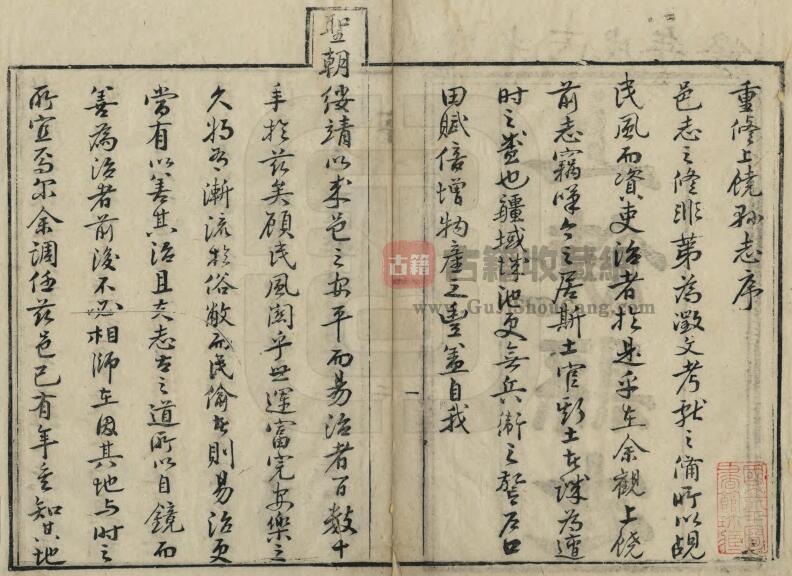 重修上饒縣志序
邑志之修非第為徵文考獻之備所以覘
民風而資吏治者於是乎在余觀上饒
前志竊嘆今之居斯土官斯土者誠為遭
時之盛也疆域城池更無兵衛之警戶口
田賦倍增物產之豐蓋自我
聖朝綏靖以來邑之安平而易治者百數十
年於茲矣顧民風關乎世運富完安樂之
久將有漸流於俗敝而民偷者則易治更
當有以善其治且夫志古之道所以自鏡而
善為治者前後不必相師在因其地與時之
所宜焉爾余調任茲邑已有年矣知其地
一
古籍
古籍收藏網
www.GuJiShouCang.com